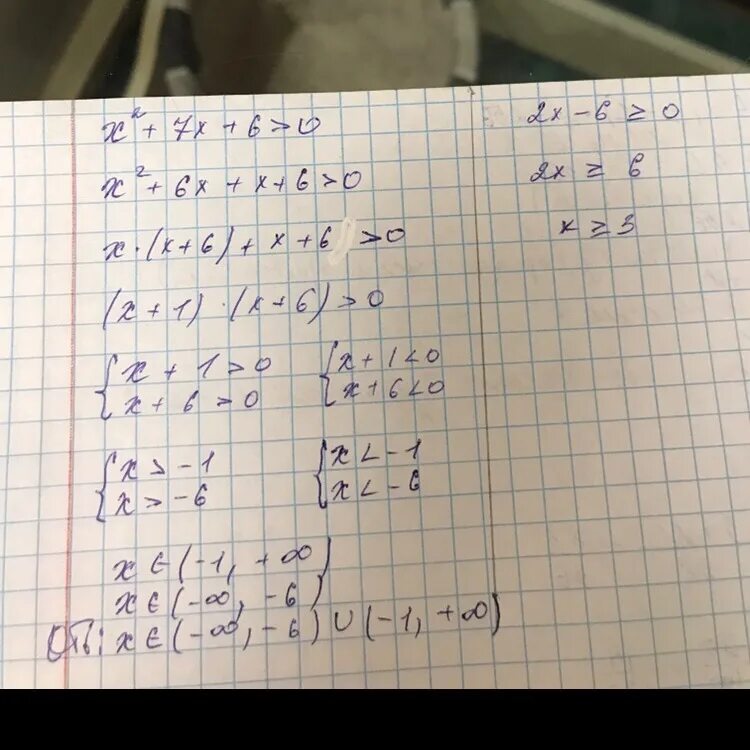 x² + 7x + 6 > 0
x² + 6x + x + 6 > 0
x · (x + 6) + x + 6 > 0
(x + 1) · (x + 6) > 0
{ x + 1 > 0 { x + 1 < 0
{ x + 6 > 0 { x + 6 < 0
{ x > -1 { x < -1
{ x > -6 { x < -6
x ∈ (-1, +∞)
x ∈ (-∞, -6)
Отв: x ∈ (-∞, -6) ∪ (-1, +∞)
2x - 6 ≥ 0
2x ≥ 6
x ≥ 3